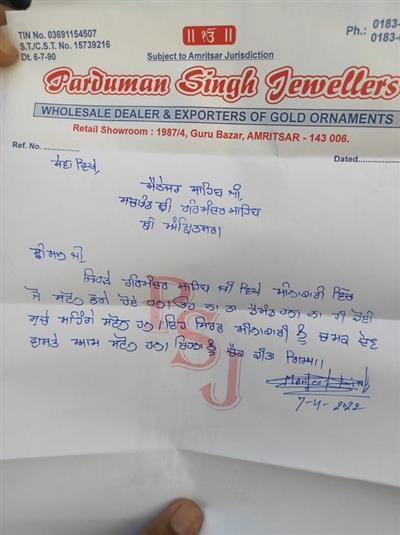 TIN No. 03691154507
S.T./C.S.T. No. 15739216
Dt. 6-7-90
Ph.: 0183-
0183-
Subject to Amritsar Jurisdiction
Parduman Singh Jewellers
WHOLESALE DEALER & EXPORTERS OF GOLD ORNAMENTS
Retail Showroom : 1987/4, Guru Bazar, AMRITSAR - 143 006.
Ref. No. ............
Dated............
ਸੇਵਾ ਵਿਖੇ,
ਮੈਨੇਜਰ ਸਾਹਿਬ ਜੀ,
ਸਚਖੰਡ ਸ਼੍ਰੀ ਹਰਿਮੰਦਰ ਸਾਹਿਬ
ਸ਼੍ਰੀ ਅੰਮ੍ਰਿਤਸਰ।
ਸ਼੍ਰੀਮਾਨ ਜੀ,
ਜਿਹੜੇ ਹਰਿਮੰਦਰ ਸਾਹਿਬ ਜੀ ਵਿਖੇ ਮੀਨਾਕਾਰੀ ਵਿੱਚ
ਜੋ ਸਟੋਨ ਲੱਗੇ ਹੋਏ ਹਨ। ਇਹ ਨਾ ਤਾ ਡੈਮੰਡ ਹਨ ਨਾ ਹੀ ਕੋਈ
ਸੁਚੇ ਮਹਿੰਗੇ ਸਟੋਨ ਹਨ। ਇਹ ਸਿਰਫ ਮੀਨਾਕਾਰੀ ਨੂੰ ਚਮਕ ਦੇਣ
ਵਾਸਤੇ ਆਮ ਸਟੋਨ ਹਨ। ਇਹਨਾਂ ਨੂੰ ਚੈਕ ਕੀਤਾ ਗਿਆ।
PSJ
7-4-2022